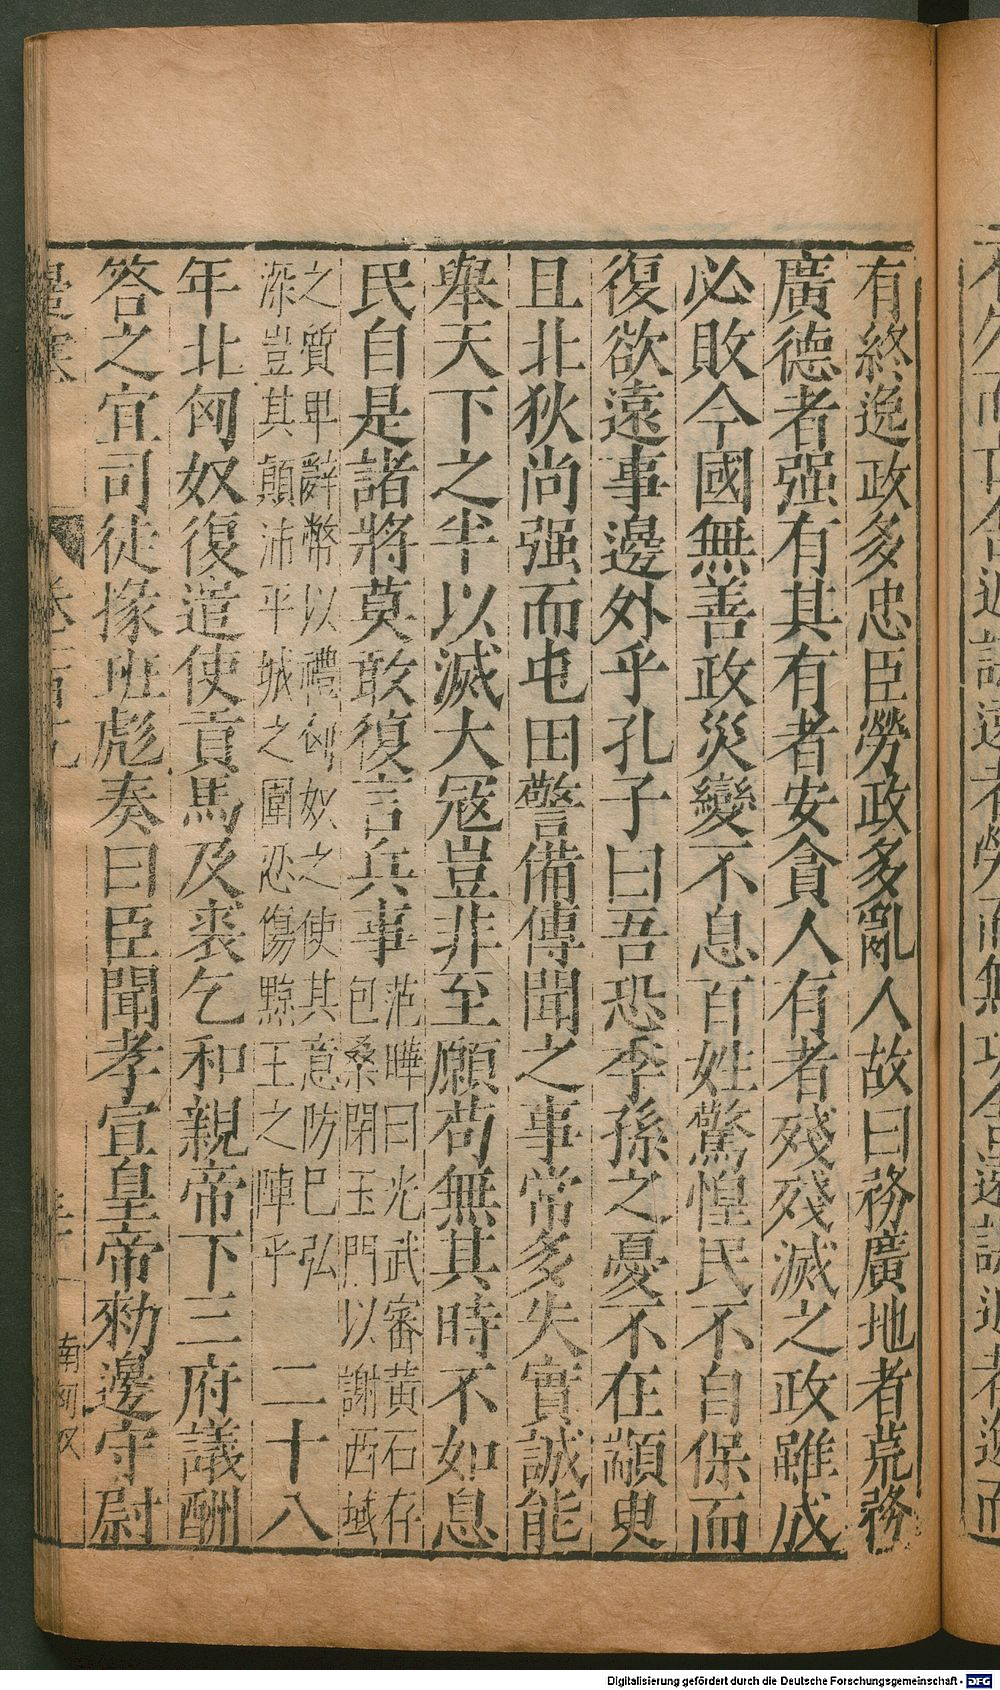 有終逸政多忠臣勞政多亂人故曰務廣地者荒務
廣德者强有其有者安貪人有者殘殘滅之政雖成
必敗今國無善政災變不息百姓驚惶民不自保而
復欲遠事邊外乎孔子曰吾恐季孫之憂不在顓臾
且北狄尚强而屯田警備傳聞之事常多失實誠能
舉天下之半以滅大寇豈非至願苟無其時不如息
民自是諸將莫敢復言兵事
范曄曰光武審黃石存
包桑閉玉門以謝西域
之質卑辭幣以禮匈奴之使其意防巳弘
深豈其顛沛平城之圍忿傷黥王之陣乎
二十八
年北匈奴復遣使貢馬及裘乞和親帝下三府議酬
答之宜司徒掾班彪奏曰臣聞孝宣皇帝勑邊守尉
南匈奴
Digitalisierung gefördert durch die Deutsche Forschungsgemeinschaft - DFG